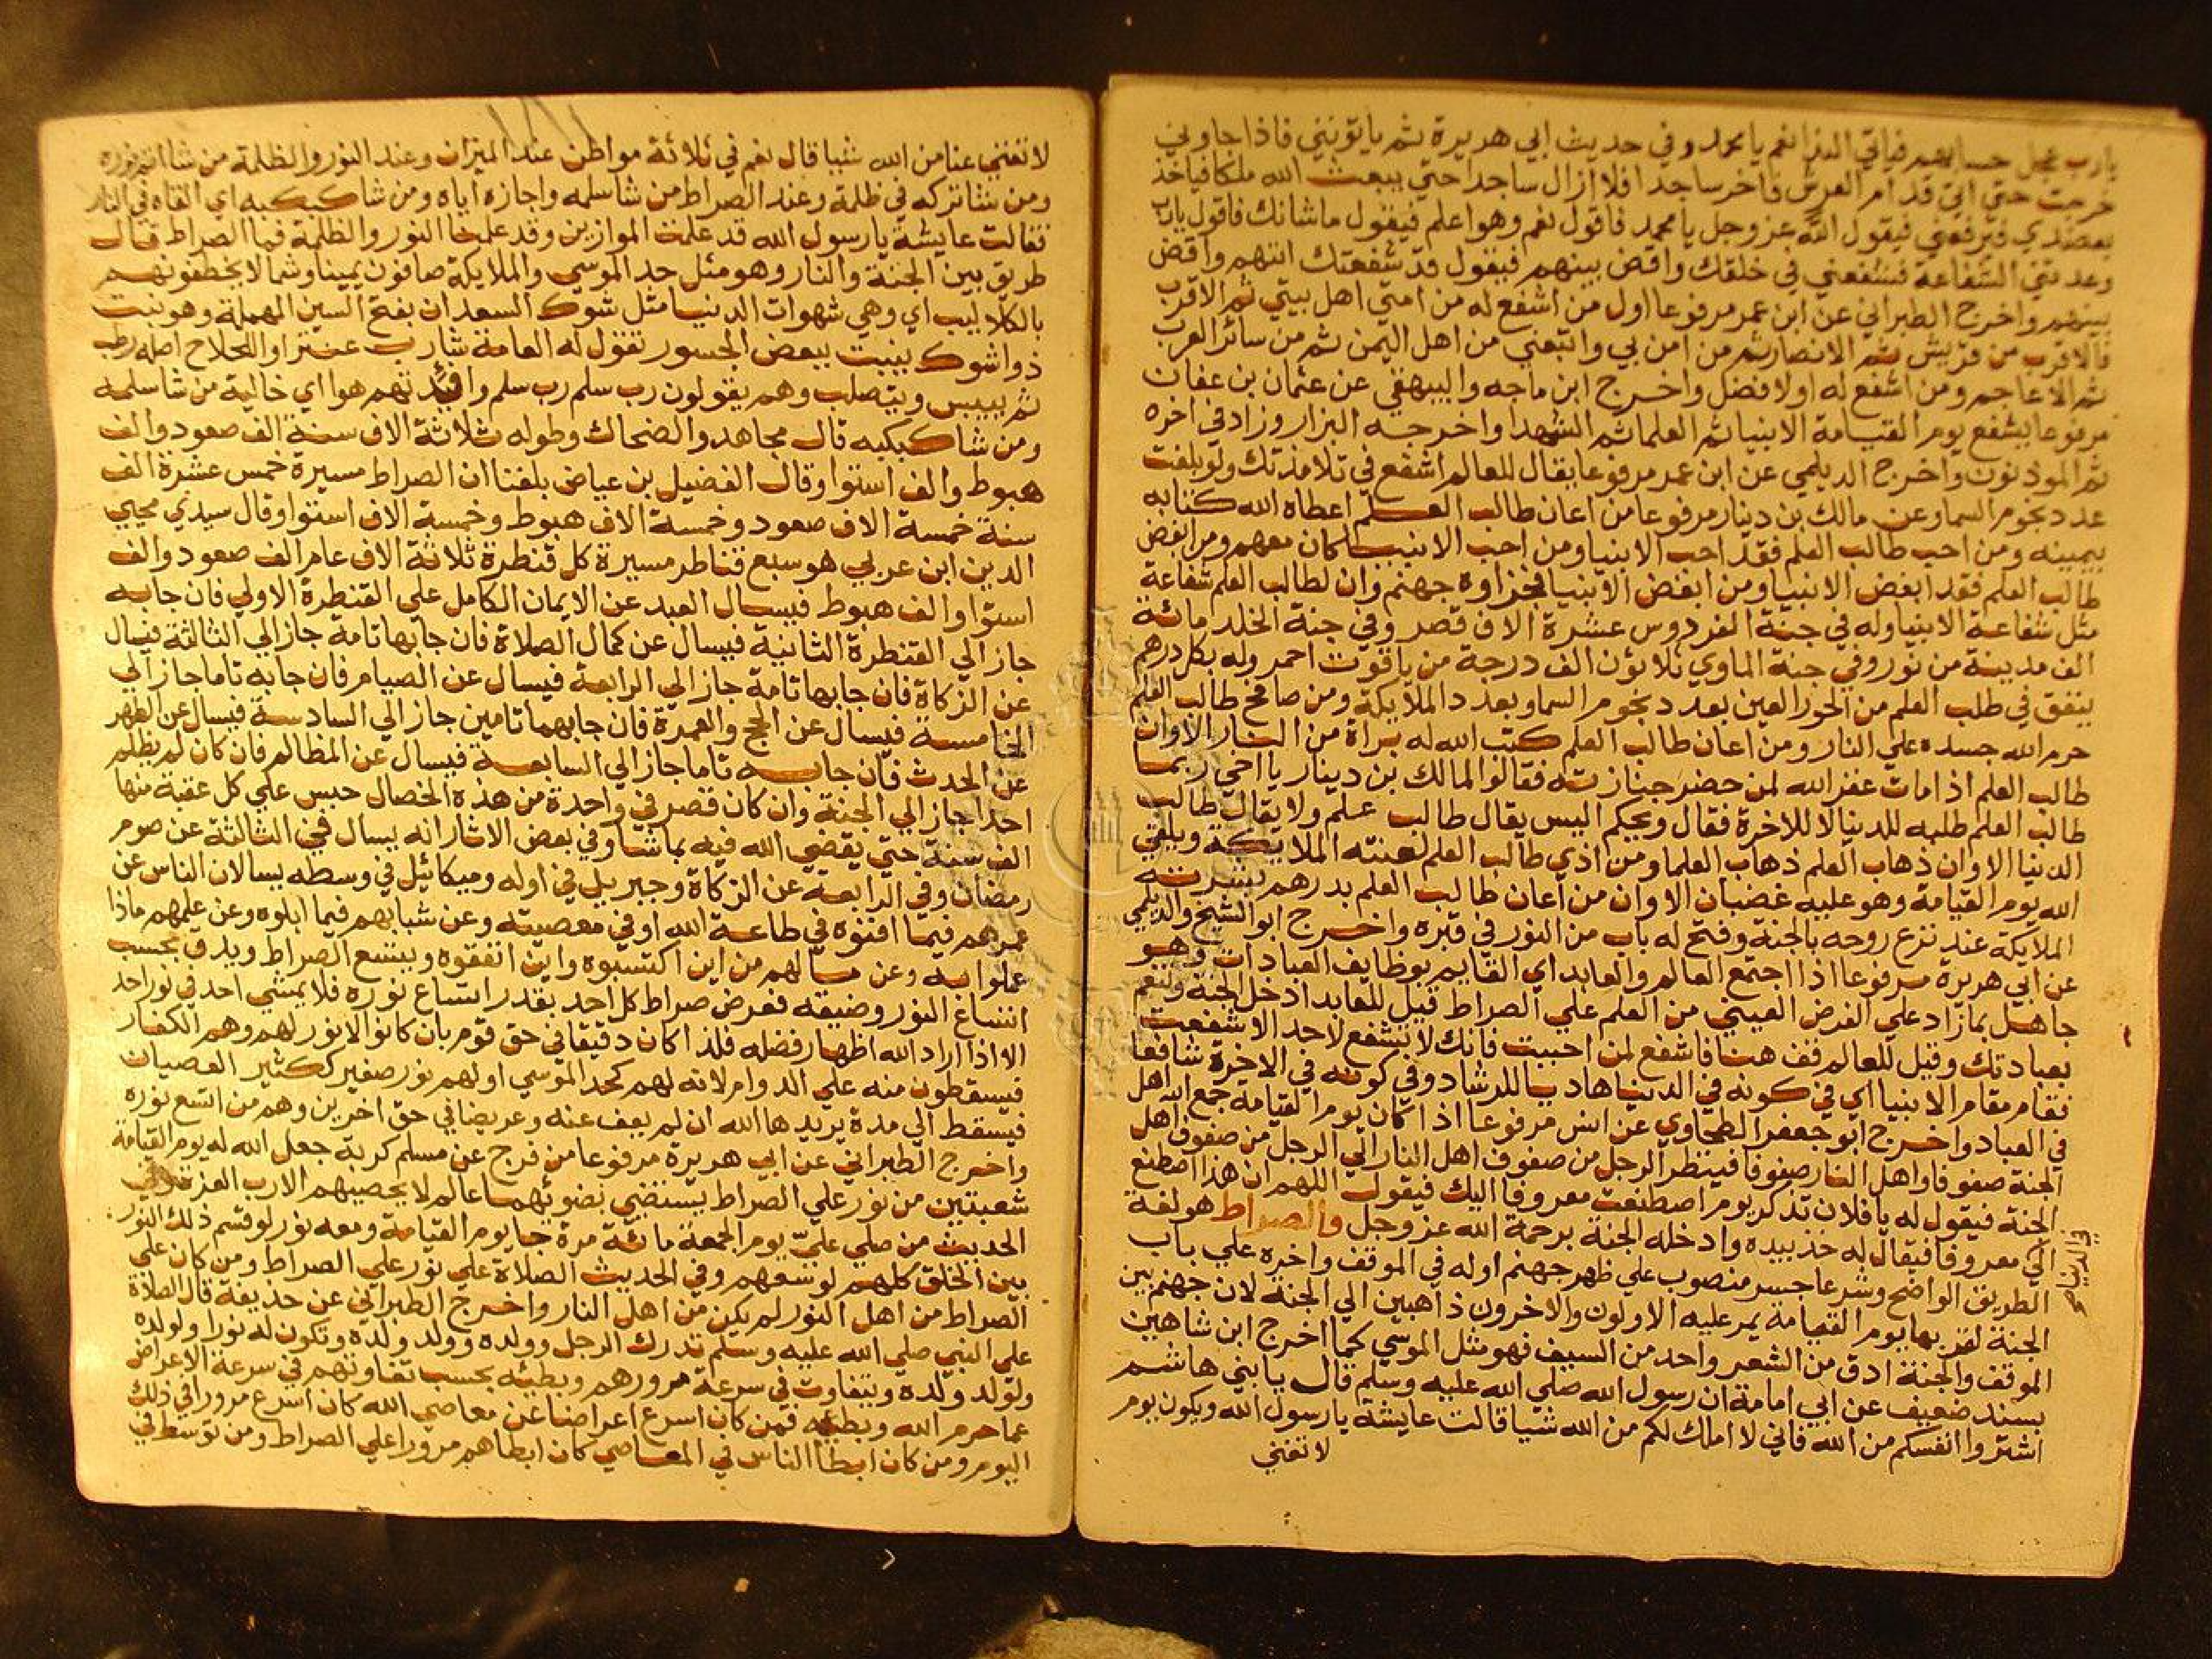 يارب عجل حسابهم فياتي الندا نعم يا محمد وفي حديث ابي هريرة ثم ياتونني فاذا جاوني
خرجت حتي اتي قدام العرش فاخر ساجدا فلا ازال ساجدا حتي يبعث الله ملكا فياخذ
بعضدي فيرفعني فيقول الله عز وجل يا محمد فاقول نعم وهو اعلم فيقول ما شانك فاقول يارب
وعدتني الشفاعة فشفعني في خلقك واقض بينهم فيقول قد شفعتك اتيهم واقض
بينهم واخرج الطبراني عن ابن عمر مرفوعا اول من اشفع له من امتي اهل بيتي ثم الاقرب
فالاقرب من قريش ثم الانصار ثم من امن بي واتبعني من اهل اليمن ثم من سائر العرب
ثم الاعاجم ومن اشفع له اولا افضل واخرج ابن ماجه والبيهقي عن عثمان بن عفان
مرفوعا يشفع يوم القيامة الانبيا ثم العلما ثم الشهدا واخرجه البزار وزاد في اخره
ثم الموذنون واخرج الديلمي عن ابن عمر مرفوعا يقال للعالم اشفع في تلامذتك ولو بلغت
عدد نجوم السما وعن مالك بن دينار مرفوعا من اعان طالب العلم اعطاه الله كتابه
بيمينه ومن احب طالب العلم فقد احب الانبيا ومن احب الانبيا كان معهم ومن ابغض
طالب العلم فقد ابغض الانبيا ومن ابغض الانبيا فجزاوه جهنم وان لطالب العلم شفاعة
مثل شفاعة الانبيا وله في جنة الفردوس عشرة الاف قصر وفي جنة الخلد مائة
الف مدينة من نور وفي جنة الماوي ثلاثون الف درجة من ياقوت احمر وله بكل درهم
ينفق في طلب العلم من الحور العين بعدد نجوم السما وبعدد الملايكة ومن صافح طالب العلم
حرم الله جسده علي النار ومن اعان طالب العلم كتب الله له براة من النار الا وان
طالب العلم اذا مات غفر الله لمن حضر جنازته فقالوا لمالك بن دينار يا اخي ربما
طالب العلم طلبه للدنيا لا للاخرة فقال ويحكم اليس يقال طالب علم ولا يقال طالب
الدنيا الا وان ذهاب العلم ذهاب العلما ومن اذي طالب العلم لعنته الملايكة ويلقي
الله يوم القيامة وهو عليه غضبان الا وان من اعان طالب العلم بدرهم بشرته
الملايكة عند نزع روحه بالجنة وفتح له باب من النور في قبره واخرج ابو الشيخ والديلمي
عن ابي هريرة مرفوعا اذا اجتمع العالم والعابد اي القايم بوظايف العبادات وهو
جاهل بما زاد علي الفرض العيني من العلم علي الصراط قيل للعابد ادخل الجنة وتنعم
بعبادتك وقيل للعالم قف هنا فاشفع لمن احببت فانك لا تشفع لاحد الا شفعت
فقام مقام الانبيا اي في كونه في الدنيا هاديا للرشاد وفي كونه في الاخرة شافعا
في العباد واخرج ابو جعفر الطحاوي عن انس مرفوعا اذا كان يوم القيامة جمع الله اهل
الجنة صفوفا واهل النار صفوفا فينظر الرجل من صفوف اهل النار الي الرجل من صفوف اهل
الجنة فيقول له يا فلان تذكر يوم اصطنعت معروفا اليك فيقول اللهم ان هذا اصطنع
الي معروفا فيقال له خذ بيده وادخله الجنة برحمة الله عز وجل والصراط هو لغة
في الدنيا
الطريق الواضح وشرعا جسر منصوب علي ظهر جهنم اوله في الموقف واخره علي باب
الجنة لقربها يوم القيامة يمر عليه الاولون والاخرون ذاهبين الي الجنة لان جهنم بين
الموقف والجنة ادق من الشعر واحد من السيف فهو مثل الموسي كما اخرج ابن شاهين
بسند ضعيف عن ابي امامة ان رسول الله صلي الله عليه وسلم قال يا بني هاشم
اشتروا انفسكم من الله فاني لا املك لكم من الله شيا قالت عايشة يا رسول الله ويكون يوم
لا تغني
لا تغني عنا من الله شيا قال نعم في ثلاثة مواطن عند الميزان وعند النور والظلمة من شا اتم نوره
ومن شا تركه في ظلمة وعند الصراط من شا سلمه واجازه اياه ومن شا كبكبه اي القاه في النار
فقالت عايشة يا رسول الله قد علمنا الموازين وقد علمنا النور والظلمة فما الصراط قال
طريق بين الجنة والنار وهو مثل حد الموسي والملايكة صافون يمينا وشمالا يخطفونهم
بالكلاليب اي وهي شهوات الدنيا مثل شوك السعدان بفتح السين المهملة وهو نبت
ذو اشوك ينبت ببعض الجسور تقول له العامة شارب عنتر او اللحلاح اصله رطب
ثم ييبس ويتصلب وهم يقولون رب سلم رب سلم وافئدتهم هوا اي خالية من شا سلمه
ومن شا كبكبه قال مجاهد والضحاك وطوله ثلاثة الاف سنة الف صعود والف
هبوط والف استوا وقال الفضيل بن عياض بلغنا ان الصراط مسيرة خمس عشرة الف
سنة خمسة الاف صعود وخمسة الاف هبوط وخمسة الاف استوا وقال سيدي محيي
الدين ابن عربي هو سبع قناطر مسيرة كل قنطرة ثلاثة الاف عام الف صعود والف
استوا والف هبوط فيسال العبد عن الايمان الكامل علي القنطرة الاولي فان جا به
جاز الي القنطرة الثانية فيسال عن كمال الصلاة فان جا بها تامة جاز الي الثالثة فيسال
عن الزكاة فان جا بها تامة جاز الي الرابعة فيسال عن الصيام فان جا به تاما جاز الي
الخامسة فيسال عن الحج والعمرة فان جا بهما تامين جاز الي السادسة فيسال عن الطهر
عن الحدث فان جا به تاما جاز الي السابعة فيسال عن المظالم فان كان لم يظلم
احدا جاز الي الجنة وان كان قصر في واحدة من هذه الخصال حبس علي كل عقبة منها
الف سنة حتي يقضي الله فيه بما شا وفي بعض الاثار انه يسال في الثالثة عن صوم
رمضان وفي الرابعة عن الزكاة وجبريل في اوله وميكائيل في وسطه يسالان الناس عن
عمرهم فيما افنوه في طاعة الله او في معصيته وعن شبابهم فيما ابلوه وعن علمهم ماذا
عملوا به وعن مالهم من اين اكتسبوه واين انفقوه ويتسع الصراط ويدق بحسب
اتساع النور وضيقه فعرض صراط كل احد بقدر اتساع نوره فلا يمشي احد في نور احد
الا اذا اراد الله اظهار فضله فلذا كان دقيقا في حق قوم بان كانوا لا نور لهم وهم الكفار
فيسقطون منه علي الدوام لانه لهم كحد الموسي او لهم نور صغير ككثير العصيان
فيسقط الي مدة يريدها الله ان لم يعف عنه وعريضا في حق اخرين وهم من اتسع نوره
واخرج الطبراني عن ابي هريرة مرفوعا من فرج عن مسلم كربة جعل الله له يوم القيامة
شعبتين من نور علي الصراط يستضي بضوئهما عالم لا يحصيهم الا رب العزة وفي
الحديث من صلي علي يوم الجمعة مائة مرة جا يوم القيامة ومعه نور لو قسم ذلك النور
بين الخلق كلهم لوسعهم وفي الحديث الصلاة علي نور علي الصراط ومن كان علي
الصراط من اهل النور لم يكن من اهل النار واخرج الطبراني عن حذيفة قال الصلاة
علي النبي صلي الله عليه وسلم تدرك الرجل وولده وولد ولده وتكون له نورا ولولده
ولولد ولده ويتفاوت في سرعة مرورهم وبطئه بحسب تفاوتهم في سرعة الاعراض
عما حرم الله وبطئه فمن كان اسرع اعراضا عن معاصي الله كان اسرع مرورا في ذلك
اليوم ومن كان ابطا الناس في المعاصي كان ابطاهم مرورا علي الصراط ومن توسط في